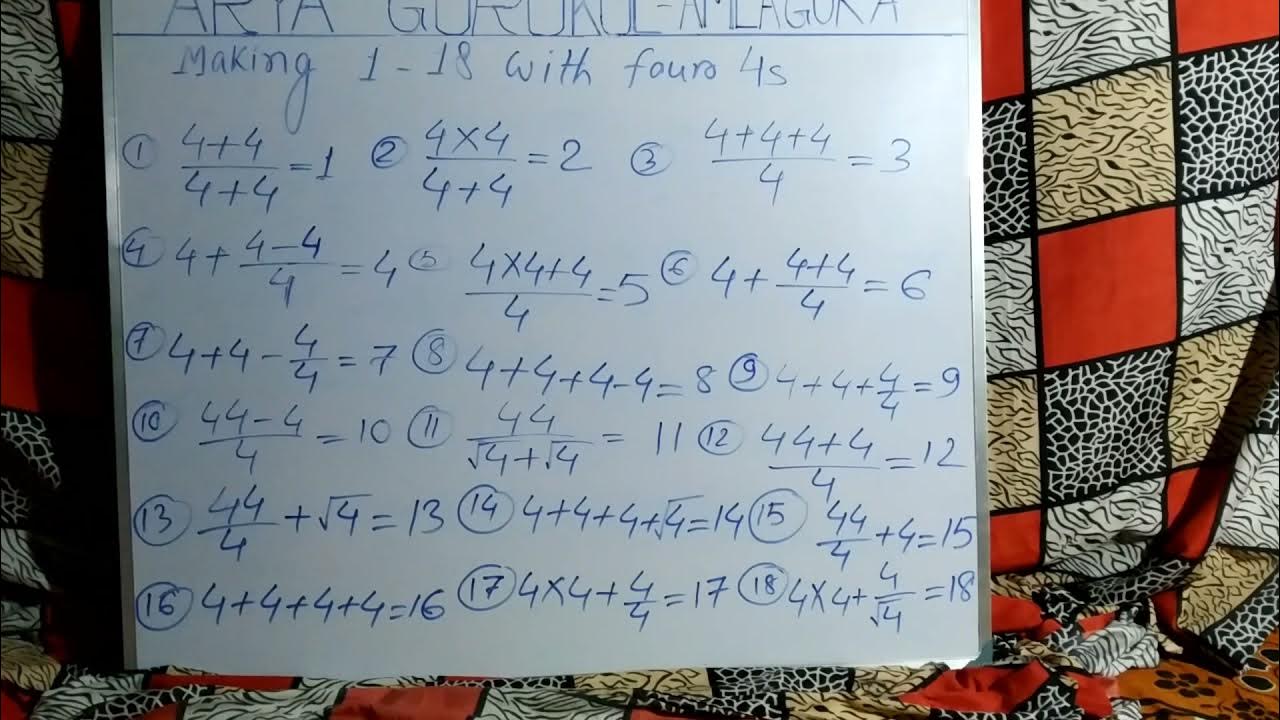 ARYA GURUKUL-AMLAGORA
Making 1-18 with four 4s
① (4+4)/(4+4)=1 ② (4×4)/(4+4)=2 ③ (4+4+4)/4=3
④ 4+(4-4)/4=4 ⑤ (4×4+4)/4=5 ⑥ 4+(4+4)/4=6
⑦ 4+4-4/4=7 ⑧ 4+4+4-4=8 ⑨ 4+4+4/4=9
⑩ (44-4)/4=10 ⑪ 44/(√4+√4)=11 ⑫ (44+4)/4=12
⑬ 44/4+√4=13 ⑭ 4+4+4+√4=14 ⑮ 44/4+4=15
⑯ 4+4+4+4=16 ⑰ 4×4+4/4=17 ⑱ 4×4+4/√4=18